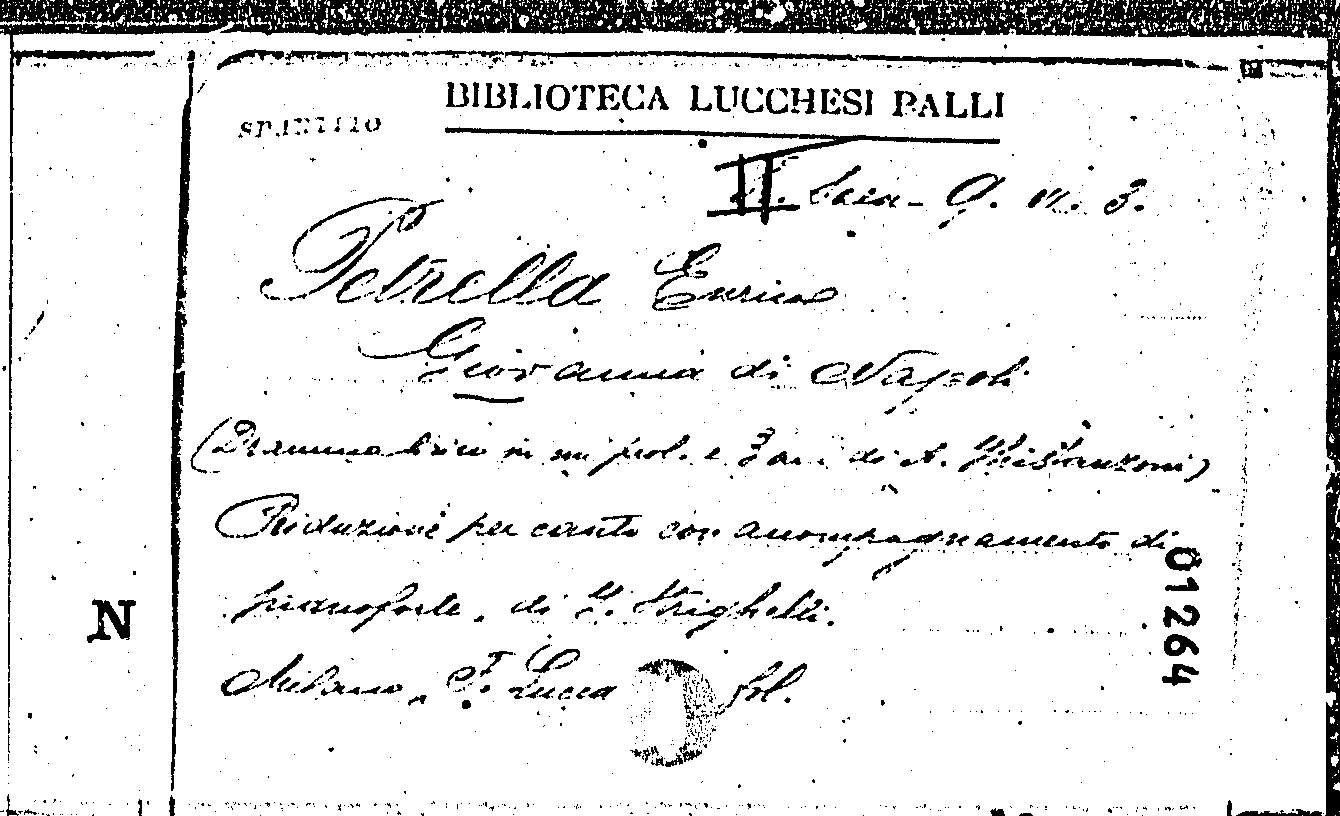 BIBLIOTECA LUCCHESI PALLI
SPARTITO
II. Sca- 9. VI. 3.
Petrella Enrico
Giovanna di Napoli
(Dramma lirico in un prol. e 3 atti di A. Ghislanzoni)
Riduzione per canto con accompagnamento di
pianoforte, di
Milano, F. Lucca fol.
N
01264